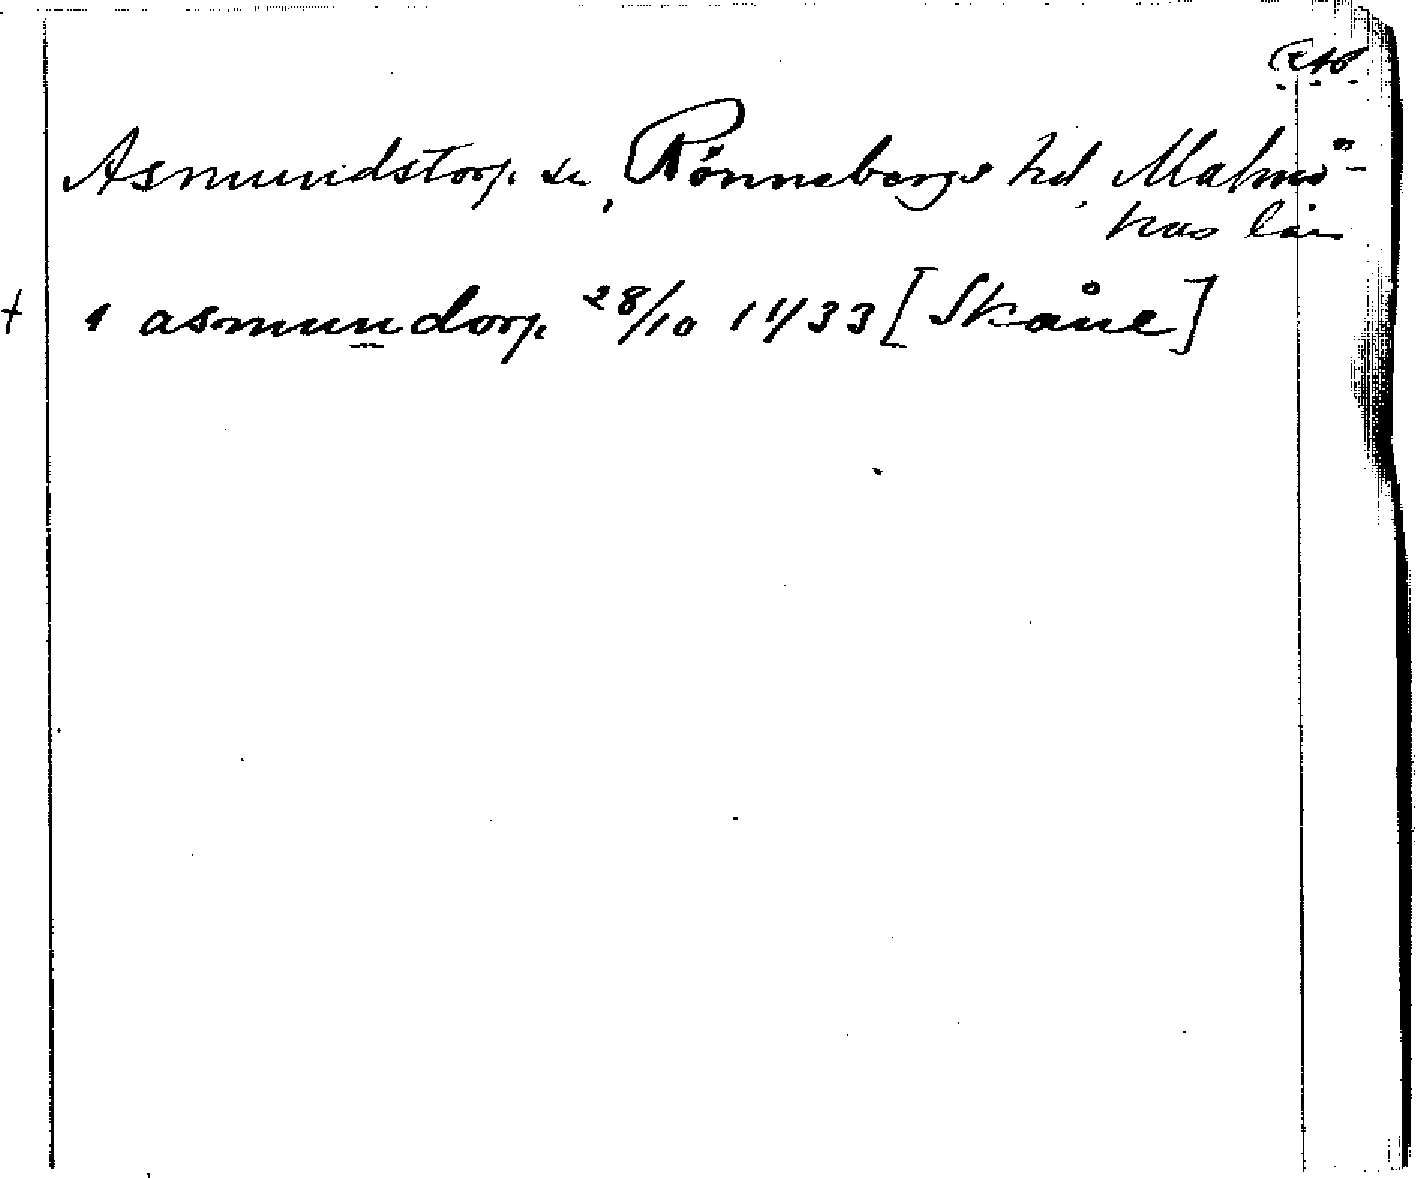 Asmundstorp sn, Rönnebergs hd, Malmö-
hus län
+ 1 asmundorp 28/10 1433 [Skåne]